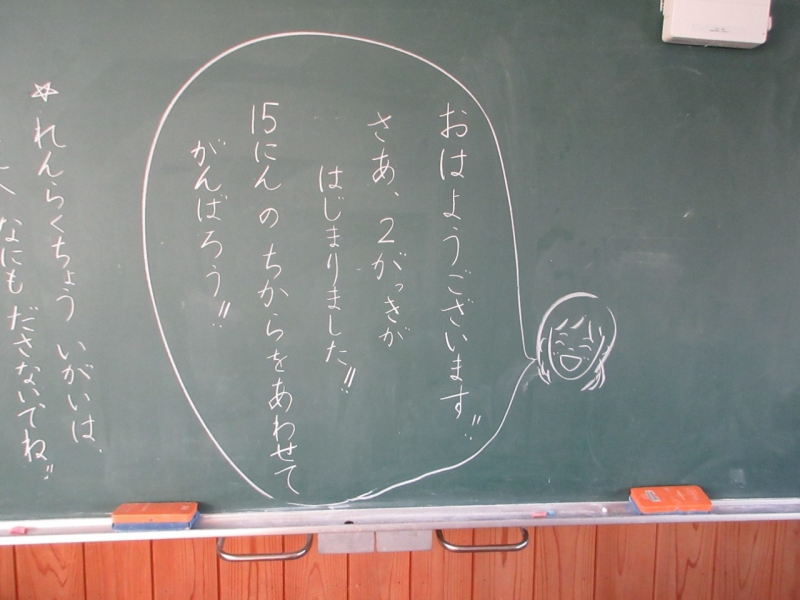 おはようございます。!!
さあ、2がっきが
はじまりました!!
15にんの ちからをあわせて
がんばろう!!
☆れんらくちょう いがいは、
なにも ださないでね!!